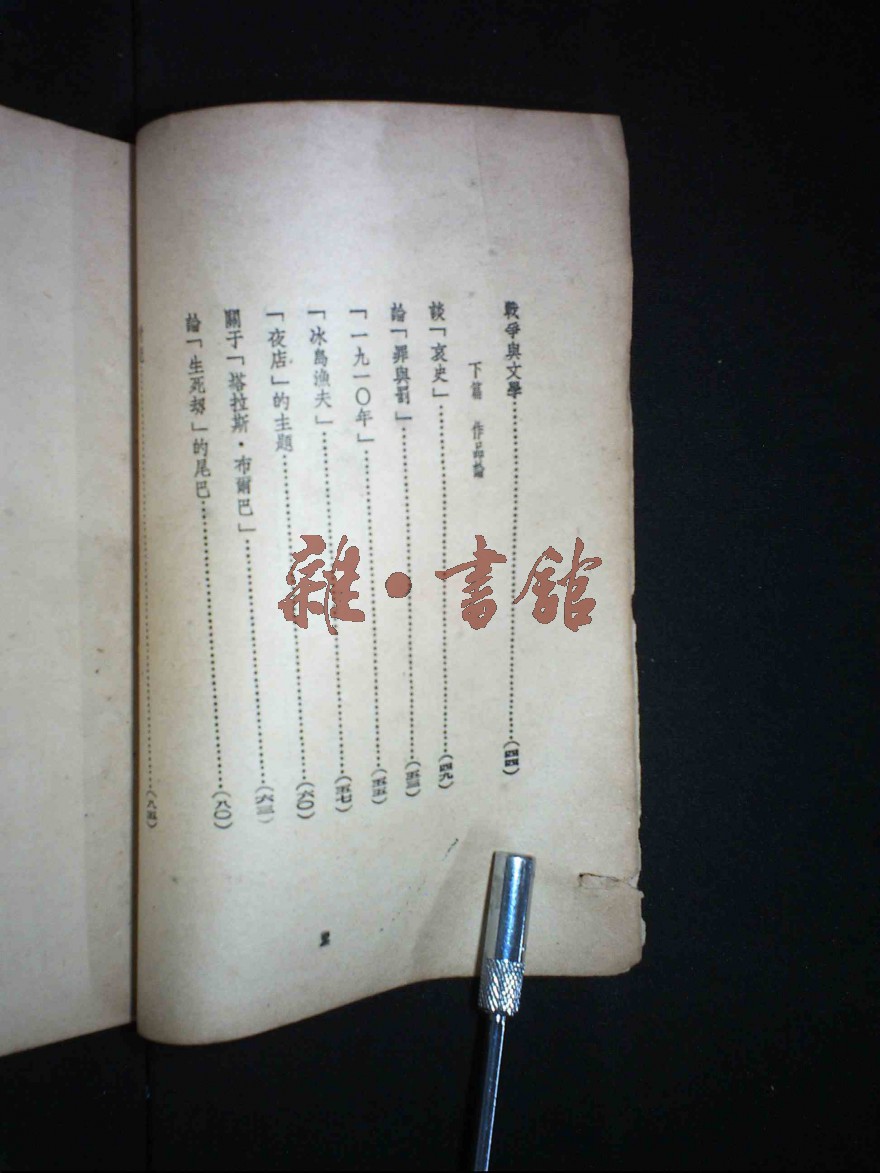 戰爭與文學……(四四)
下篇 作品論
談「哀史」……(四九)
論「罪與罰」……(五三)
「一九一〇年」……(五五)
「冰島漁夫」……(五七)
「夜店」的主題……(六〇)
關于「塔拉斯·布爾巴」……(六三)
論「生死場」的尾巴……(八〇)
……(八五)
雜·書館